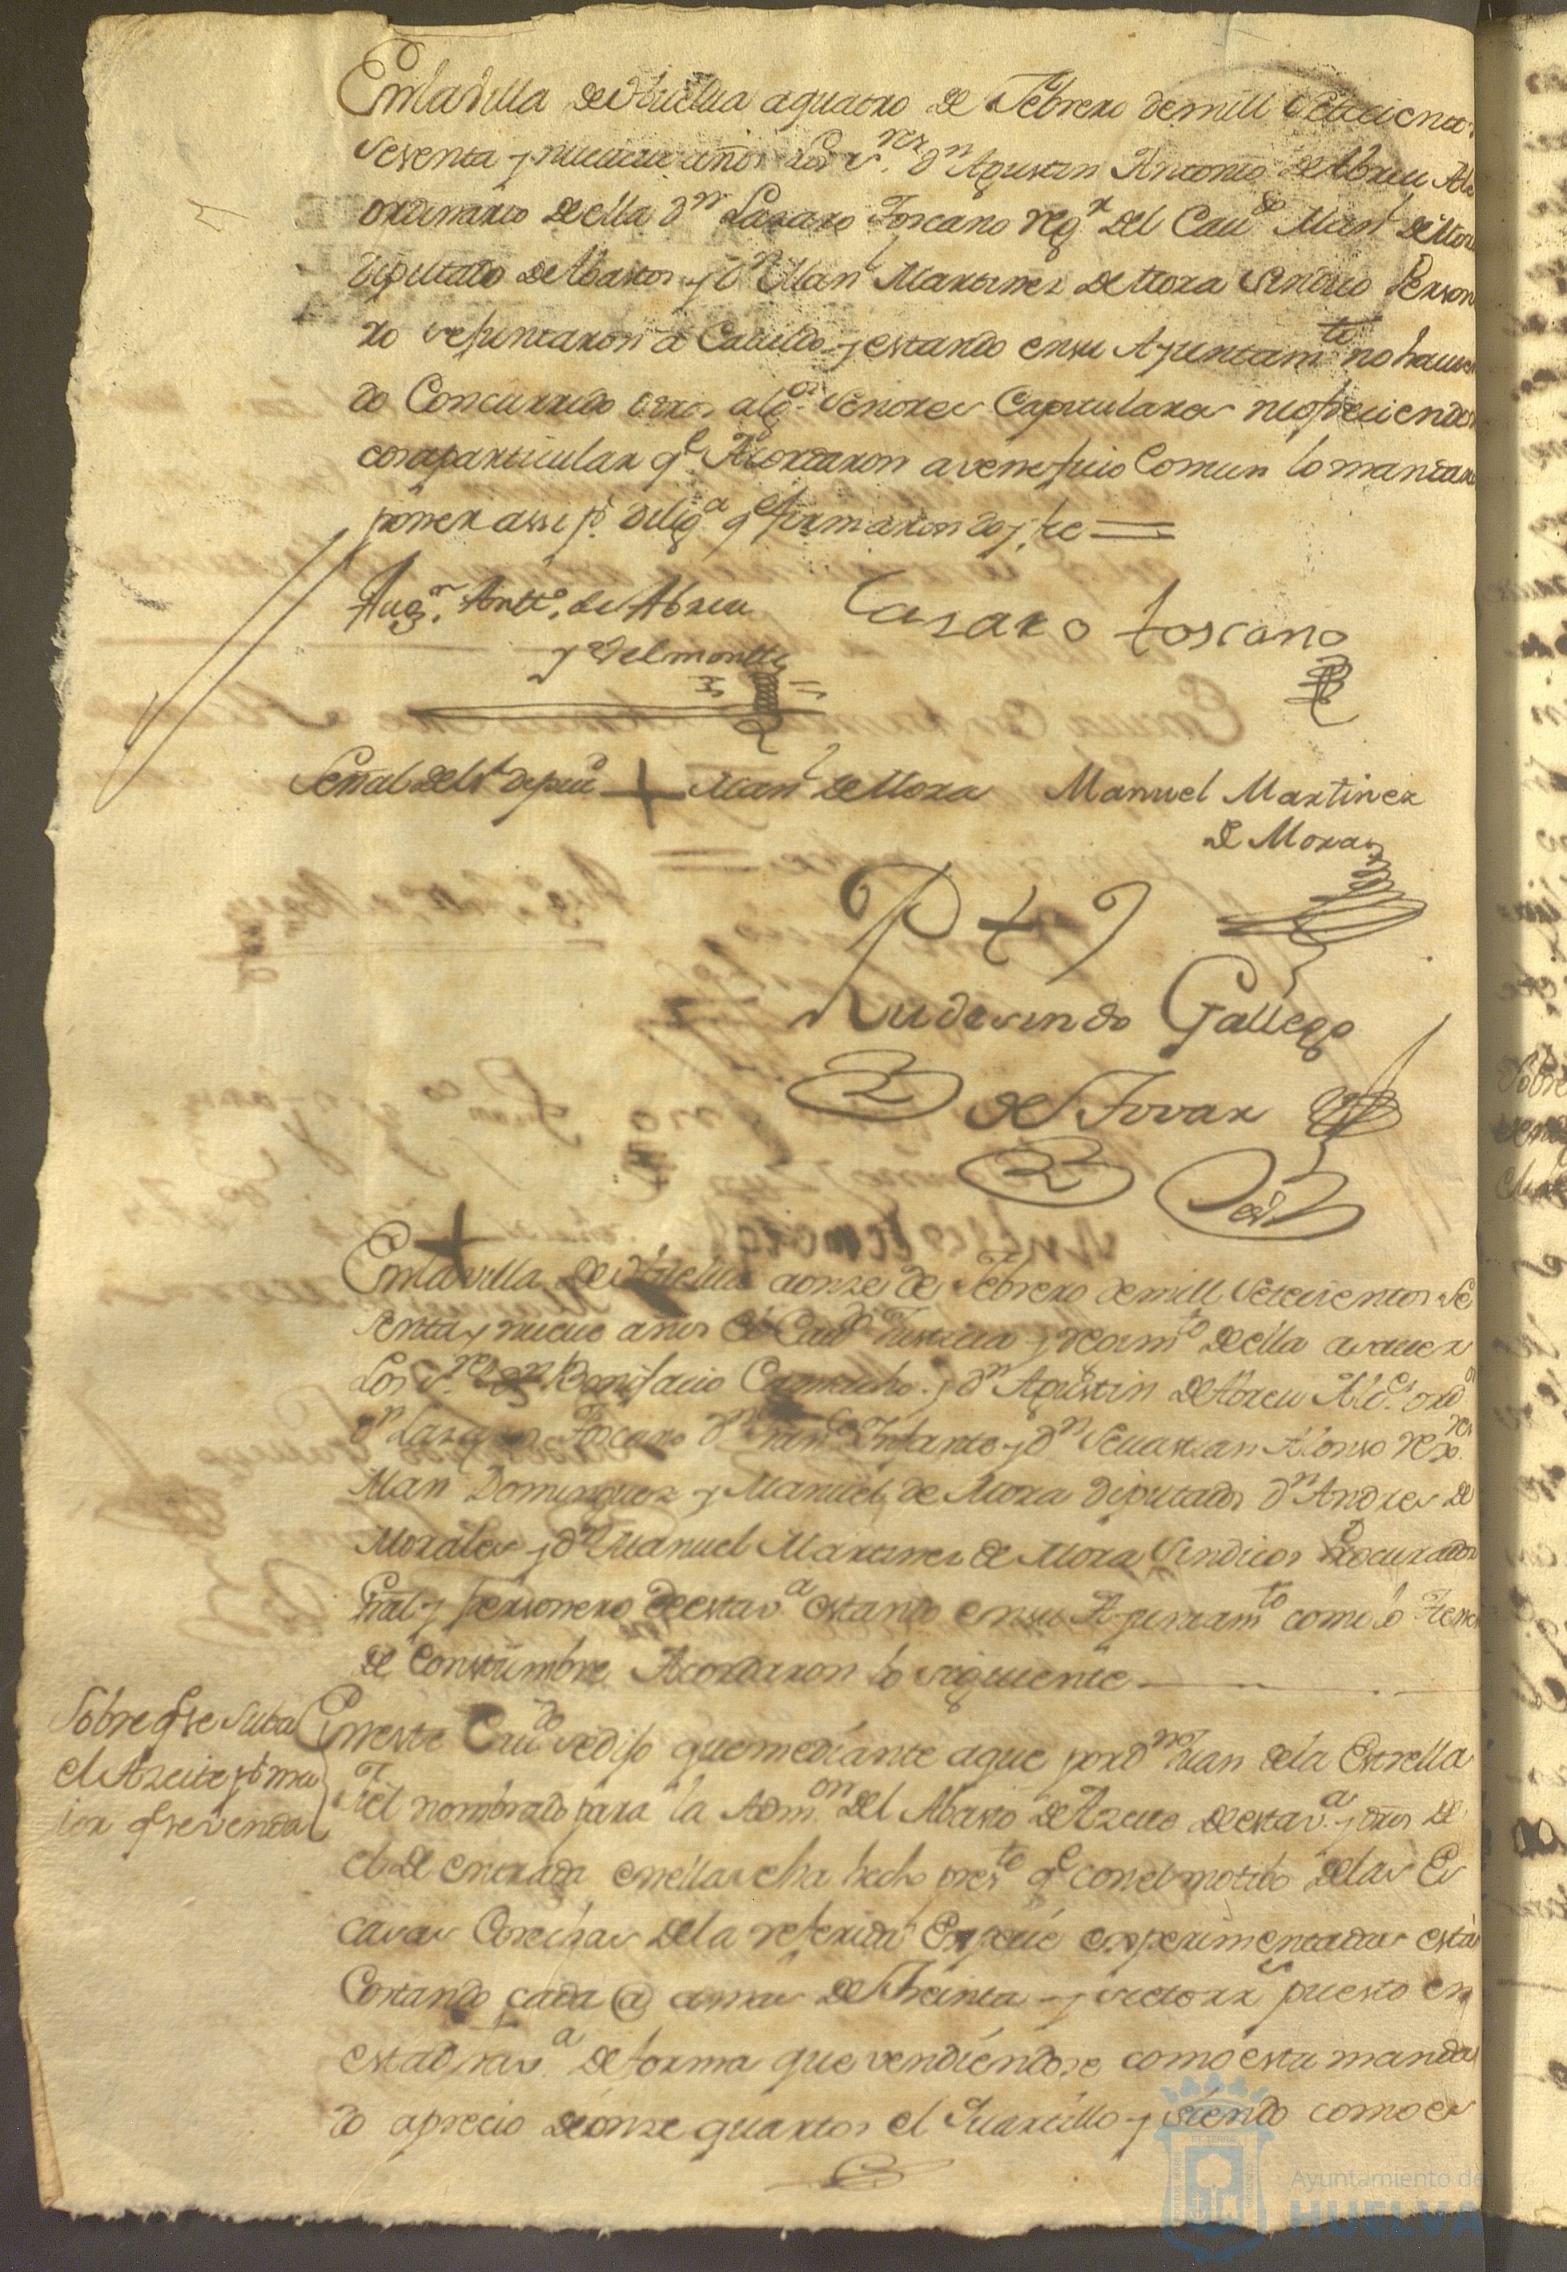 Enla Villa de Huelua aquatro de Febrero demill Setecientos
sesenta y nueue años Los s.res dn Agustin Antonio de Abreu Alc
ordinario de ella dn Lazaro Toscano regr del Caudo Manl de Mora
Diputado de Abastos y dn Manl Martinez de Mora Sindico Person
ro se juntaron a Cauildo y estando ensu Ayuntamto no hauien
do Concurrido otros algos Señores Capitulares no ofreciendose
cosa particular qe Acordaron a veneficio Comun lo mandaron
poner assi pr. diliga qe firmaron doy fe =
Augn. Antto. de Abreu
y Delmontte
Lazaro toscano
Señal del sr. depu + Manl de Mora
Manuel Martinez
de Mora
Rudesindo Gallego
de Tovar
Enla villa de Huelua aonze de Febrero demill Setecientos se
senta y nueue años el Caudo Justicia y regimto de ella asauer
Los s.res dn Bonifacio Camacho y dn Agustin de Abreu Alces. ordos
dn Lazaro Toscano dn Franco Infante y dn Seuastian Alonso rexres
Man Dominguez y Manuel de Mora diputados dn Andres de
Morales y dn Manuel Martinez de Mora Sindicos Procurador
Gral y personero de esta va estando ensu Ayuntamto como lo tienen
de Constumbre Acordaron lo siguiente
Sobre qe se suba
el Azeite pr ma
ior qe se venda
Eneste Caudo se dijo quemediante aque por dn Juan dela Estrella
Fiel nombrado para la Admon del Abasto de Azeite de esta va. y dros de
el de entrada enella se ha hecho preste qe conel motibo delas Es
casas Cosechas dela referida Especie experimentadas está
Costando cada @ amas de Treinta y siete rrs puesto en
esta dha va de forma que vendiendose como esta manda
do aprecio de onze quartos el Quartillo y siendo como es
Ayuntamiento de
HUELVA